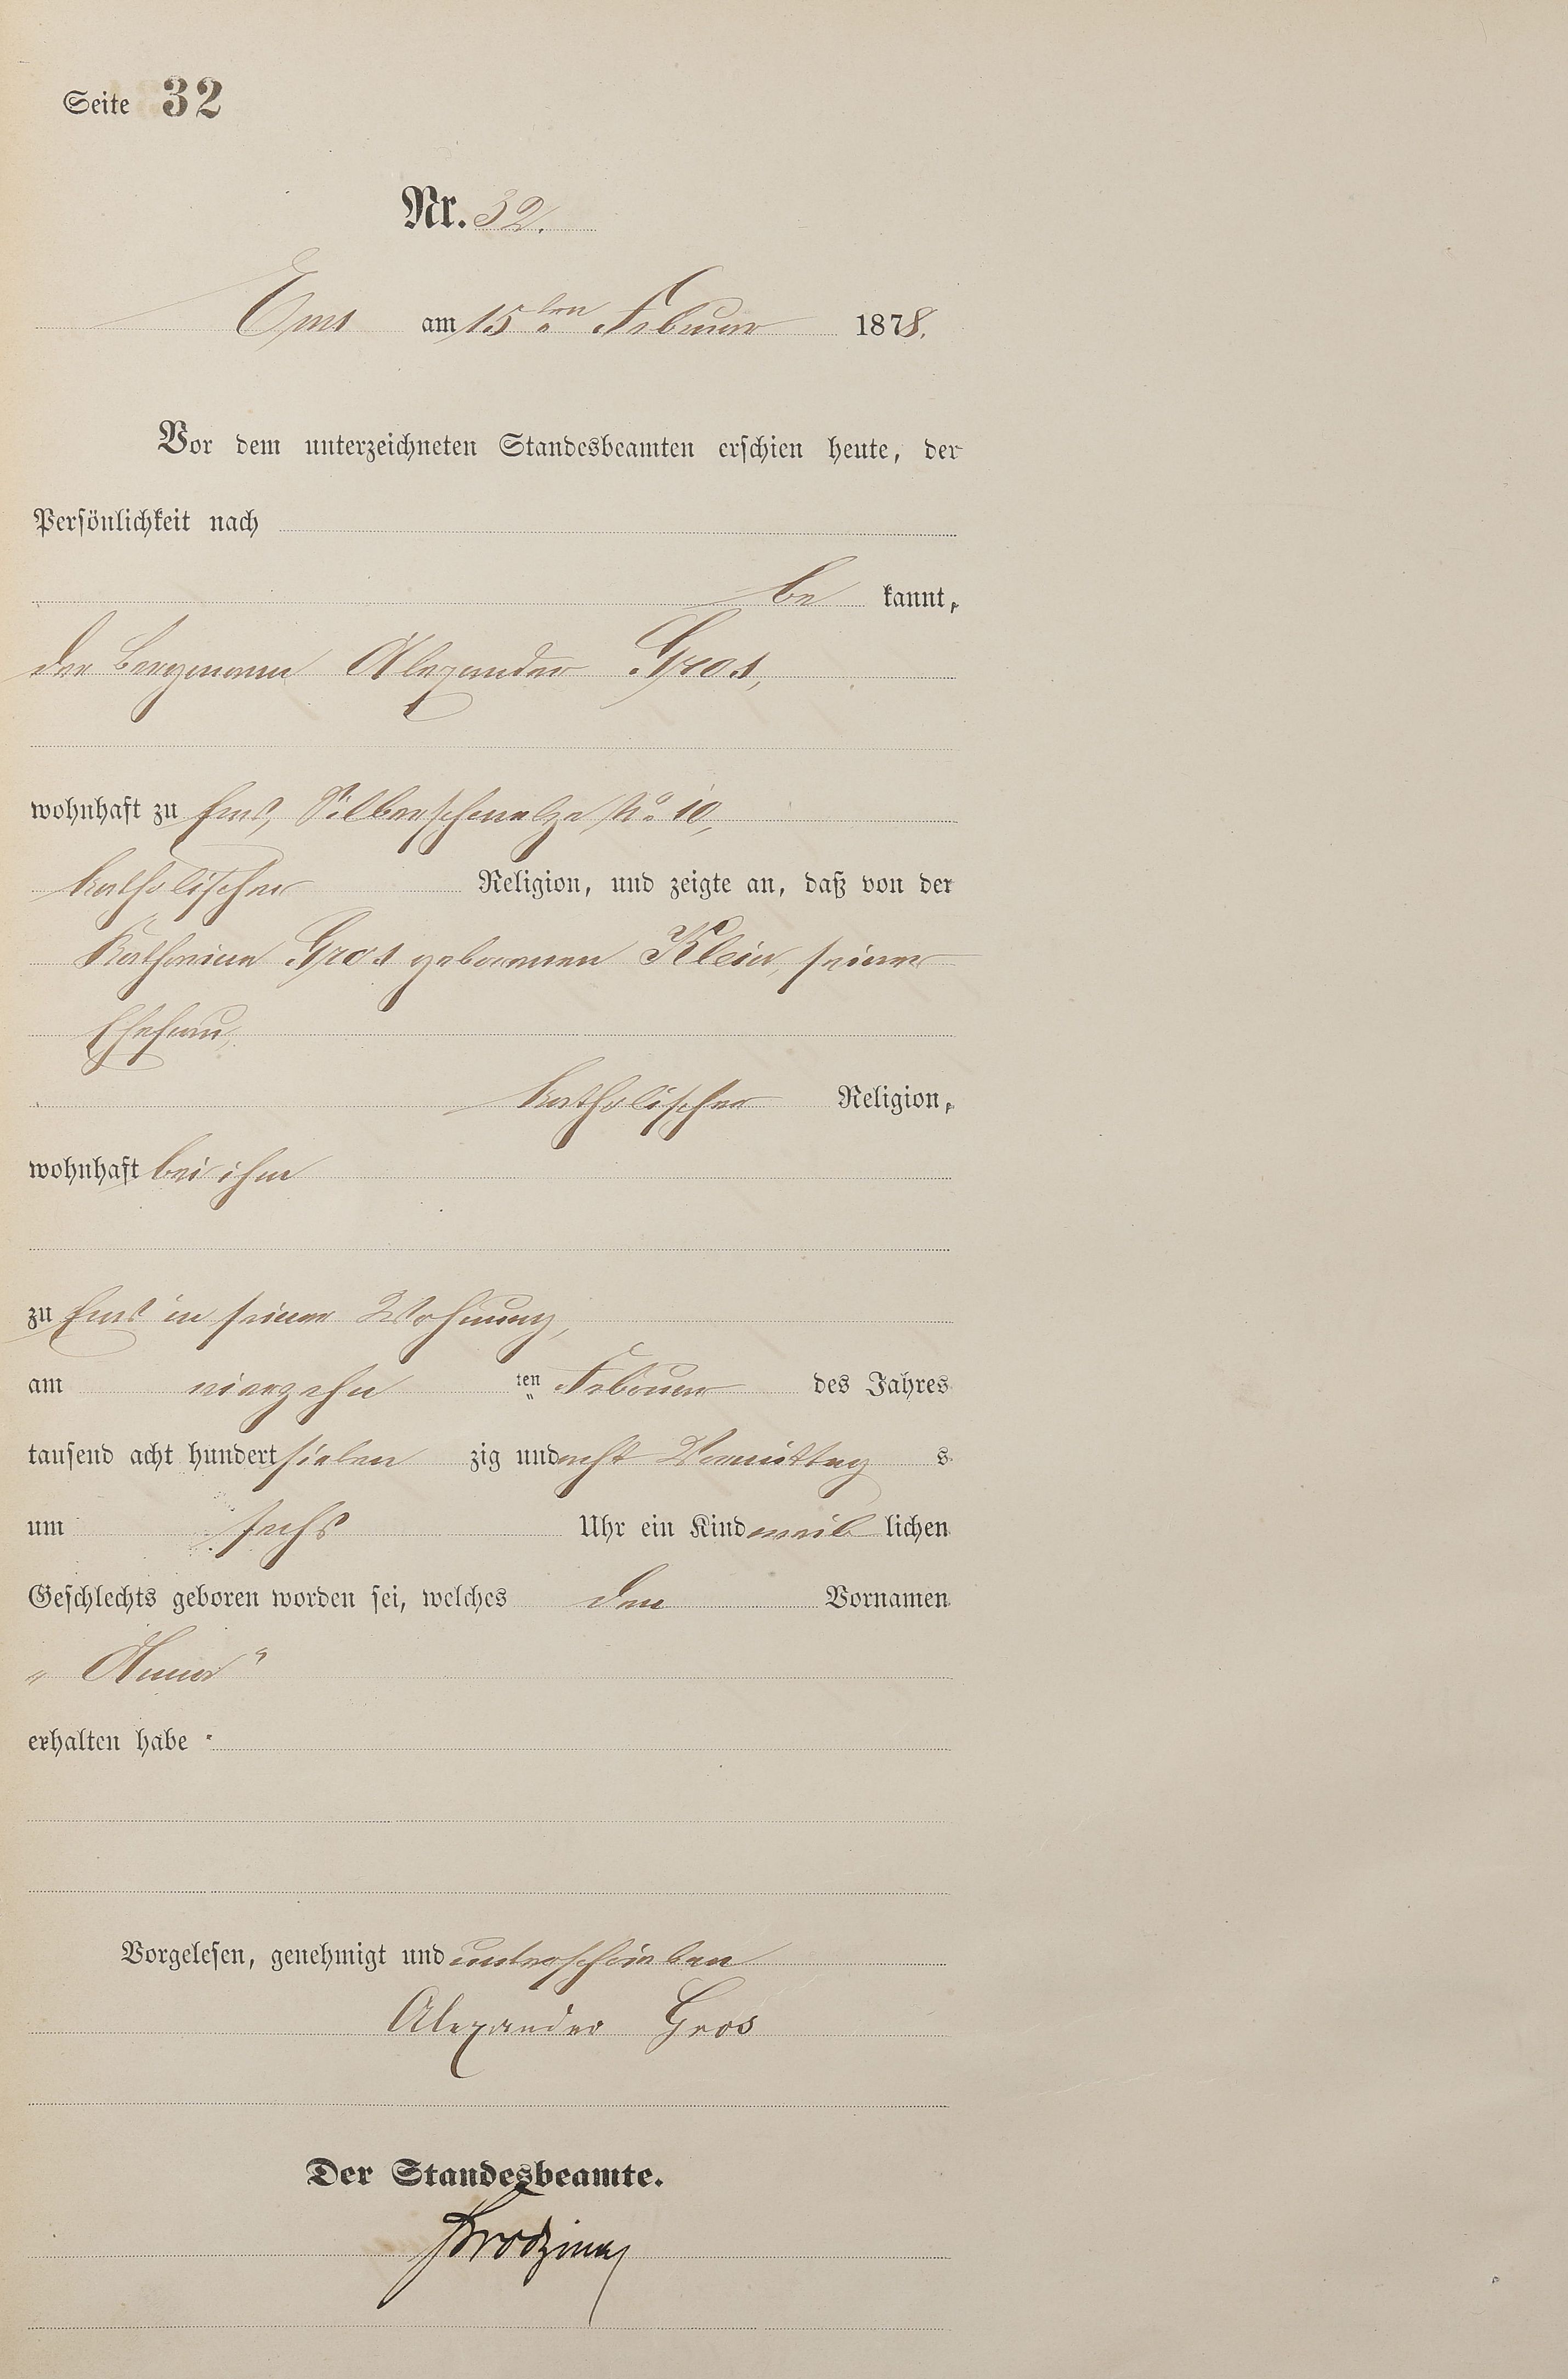 Seite 32
Nr. 32.
Ems am 15ten Februar 1878.
Vor dem unterzeichneten Standesbeamten erschien heute, der
Persönlichkeit nach
be kannt,
der Bergmann Alexander Gros,
wohnhaft zu Ems, Silberschmelze No 10,
katholischer Religion, und zeigte an, daß von der
Katharina Gros geborenen Klein, seiner
Ehefrau,
katholischer Religion,
wohnhaft bei ihm
zu Ems in seiner Wohnung,
am vierzehn ten Februar des Jahres
tausend acht hundert sieben zig und acht Vormittag s
um sechs Uhr ein Kind weib lichen
Geschlechts geboren worden sei, welches den Vornamen
„ Anna “
erhalten habe
Vorgelesen, genehmigt und unterschrieben
Alexander Gros
Der Standesbeamte.